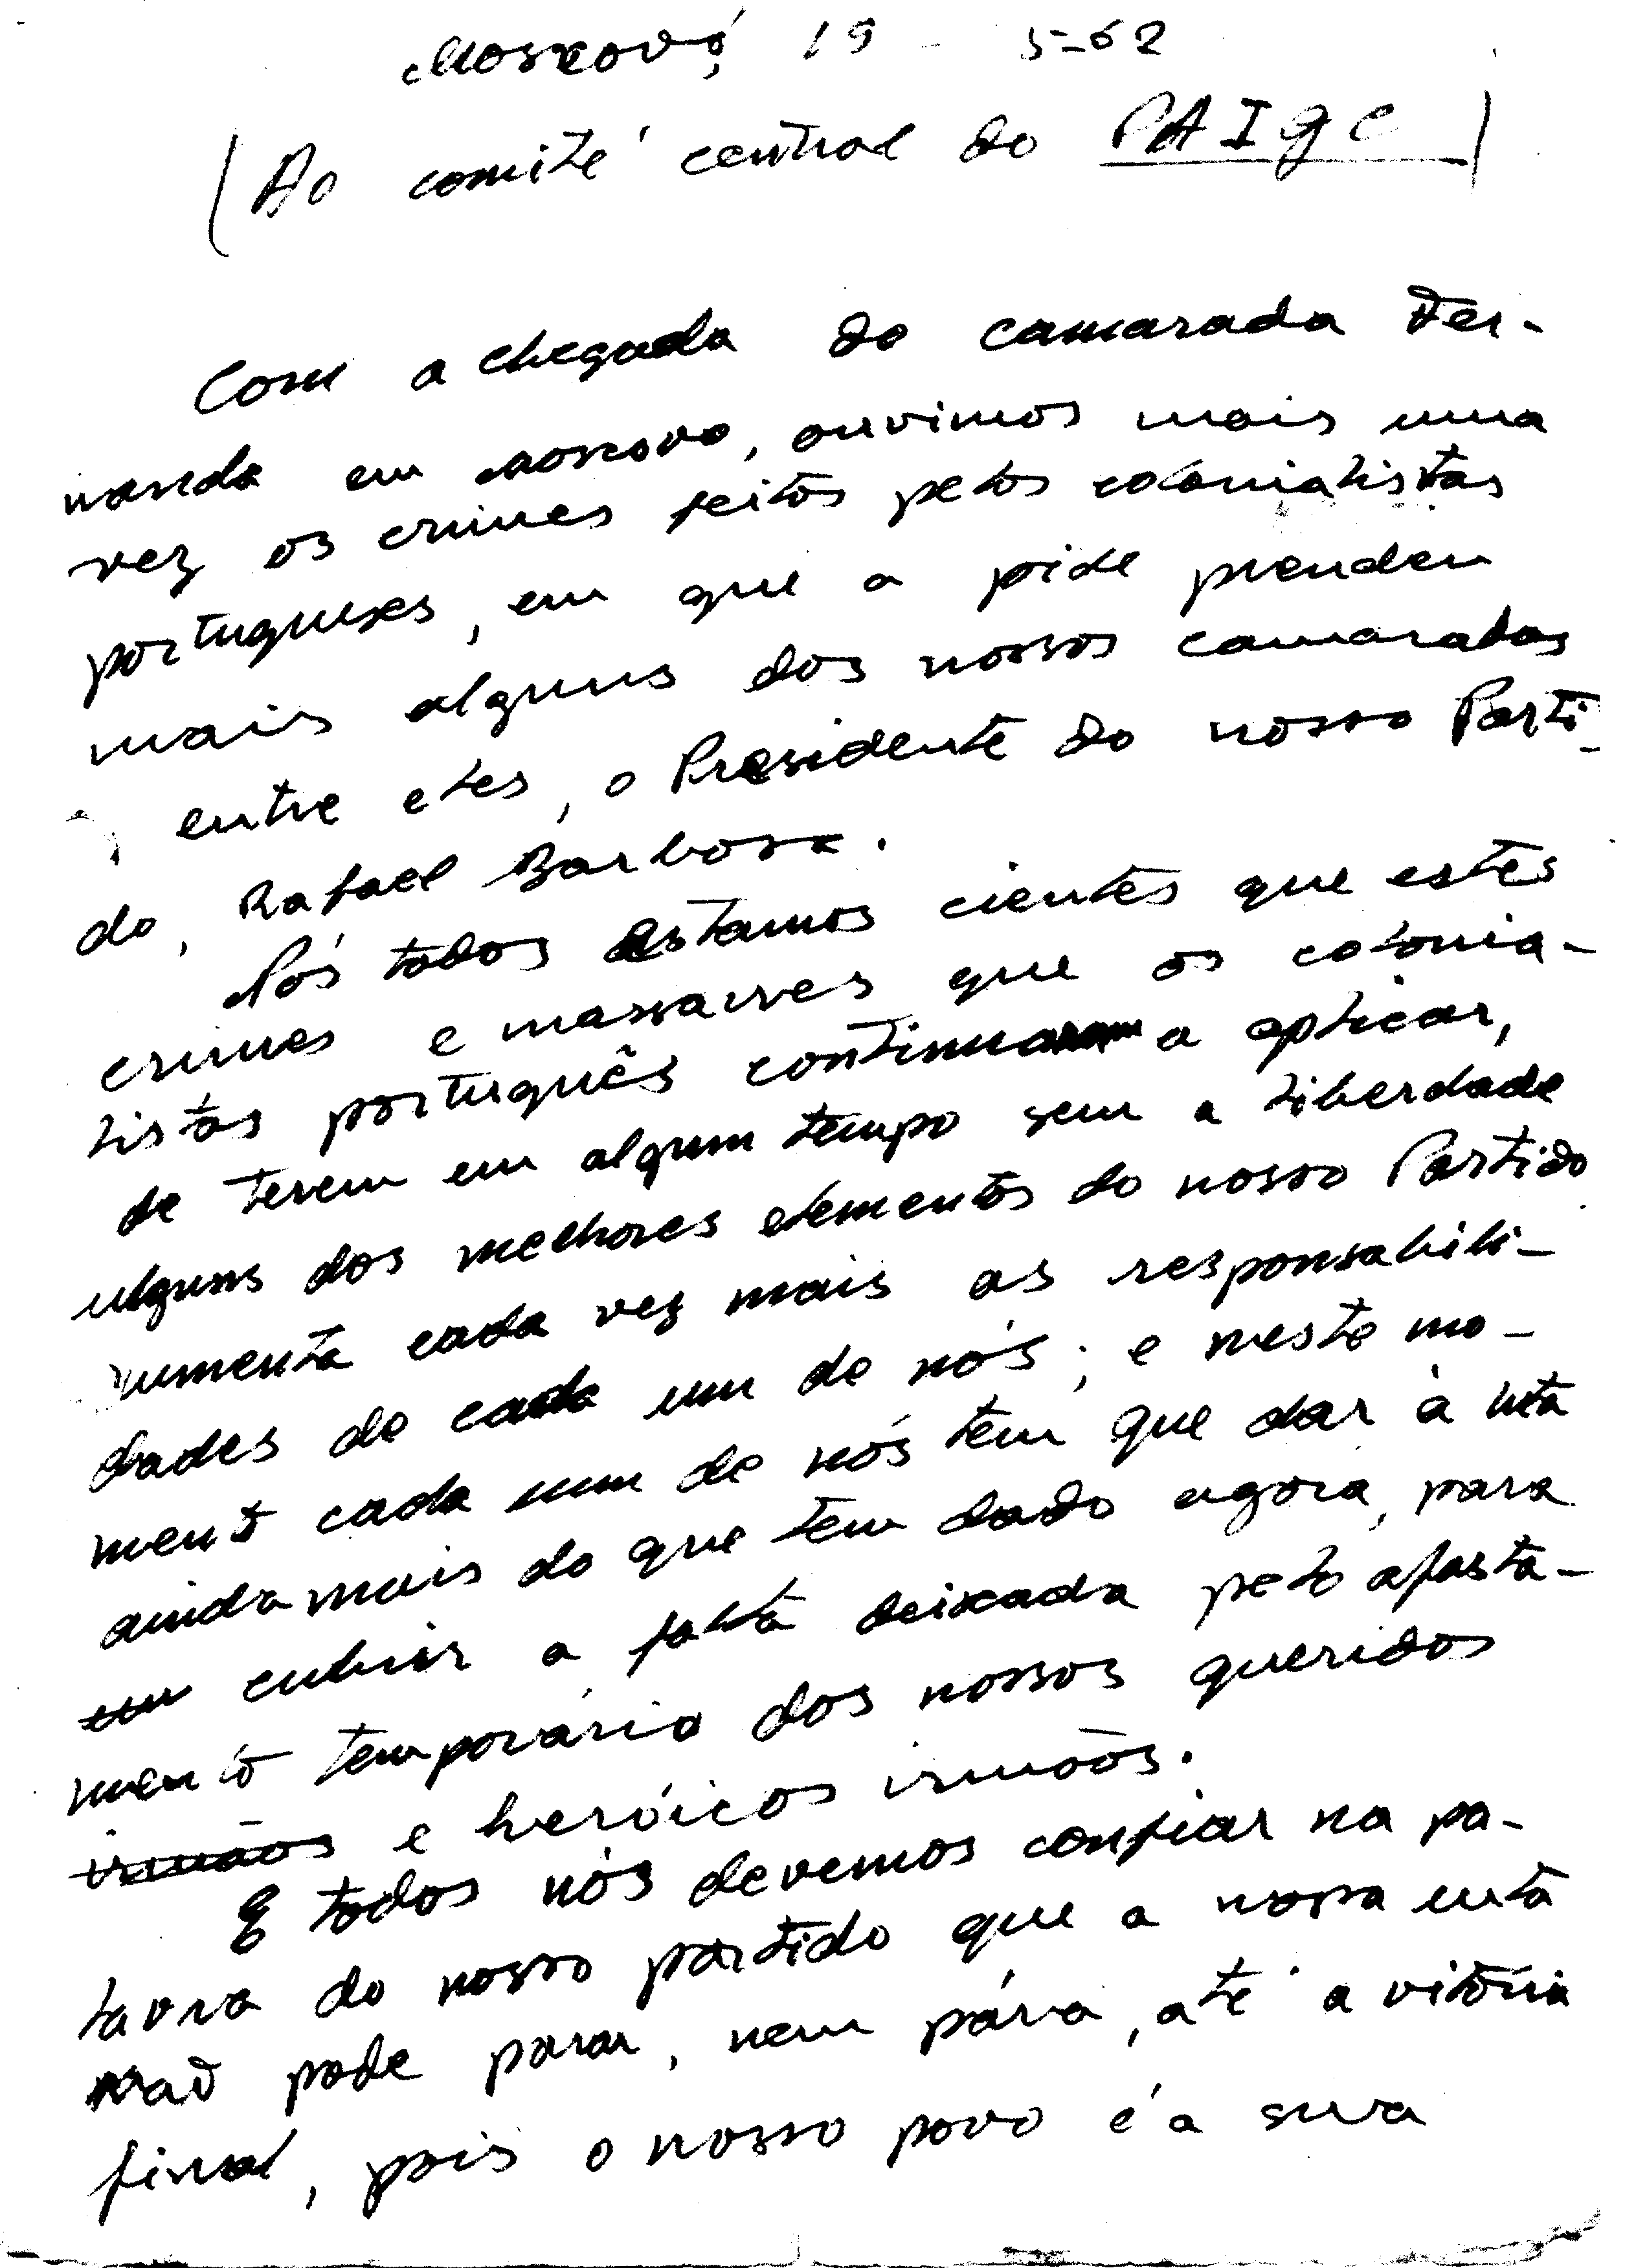 Moscovo, 19 - 5-62
(Ao comité central do PAIGC)
Com a chegada do camarada Fer-
nando em Moscovo, ouvimos mais uma
vez os crimes feitos pelos colonialistas
portugueses, em que a pide prendeu
mais alguns dos nossos camaradas
, entre eles, o Presidente do nosso Parti-
do, Rafael Barbosa.
Nós todos estamos cientes que estes
crimes e massacres que os colonia-
listas português continuaram a aplicar,
de terem em algum tempo sem a liberdade
alguns dos melhores elementos do nosso Partido
aumenta cada vez mais as responsabili-
dades de cada um de nós; e neste mo-
mento cada um de nós tem que dar à luta
ainda mais do que tem dado agora, para
em cubrir a falta deixada pelo afasta-
mento temporário dos nossos queridos
irmãos e heróicos irmãos.
E todos nós devemos confiar na pa-
lavra do nosso partido que a nossa luta
não pode parar, nem pára, até a vitória
final, pois o nosso povo é a sua